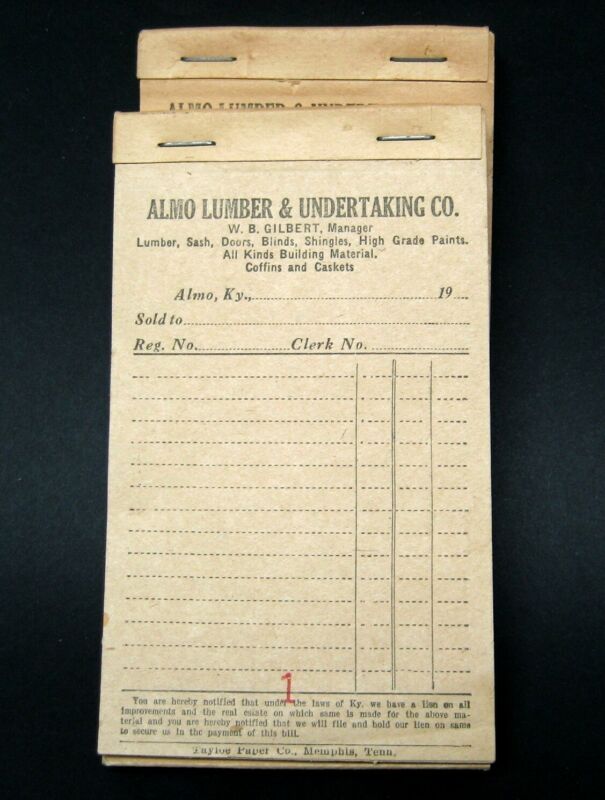 ALMO LUMBER & UNDER
ALMO LUMBER & UNDERTAKING CO.
W. B. GILBERT, Manager
Lumber, Sash, Doors, Blinds, Shingles, High Grade Paints.
All Kinds Building Material.
Coffins and Caskets
Almo, Ky., 19
Sold to
Reg. No. Clerk No.
1
You are hereby notified that under the laws of Ky. we have a lien on all
improvements and the real estate on which same is made for the above ma-
terial and you are hereby notified that we will file and hold our lien on same
to secure us in the payment of this bill.
Tayloe Paper Co., Memphis, Tenn.